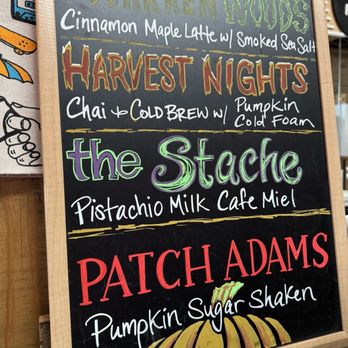 WARREN WOODS
Cinnamon Maple Latte w/ Smoked Sea Salt
HARVEST NIGHTS
Chai + COLD BREW w/ Pumpkin
Cold Foam
the Stache
Pistachio Milk Cafe Miel
PATCH ADAMS
Pumpkin Sugar Shaken